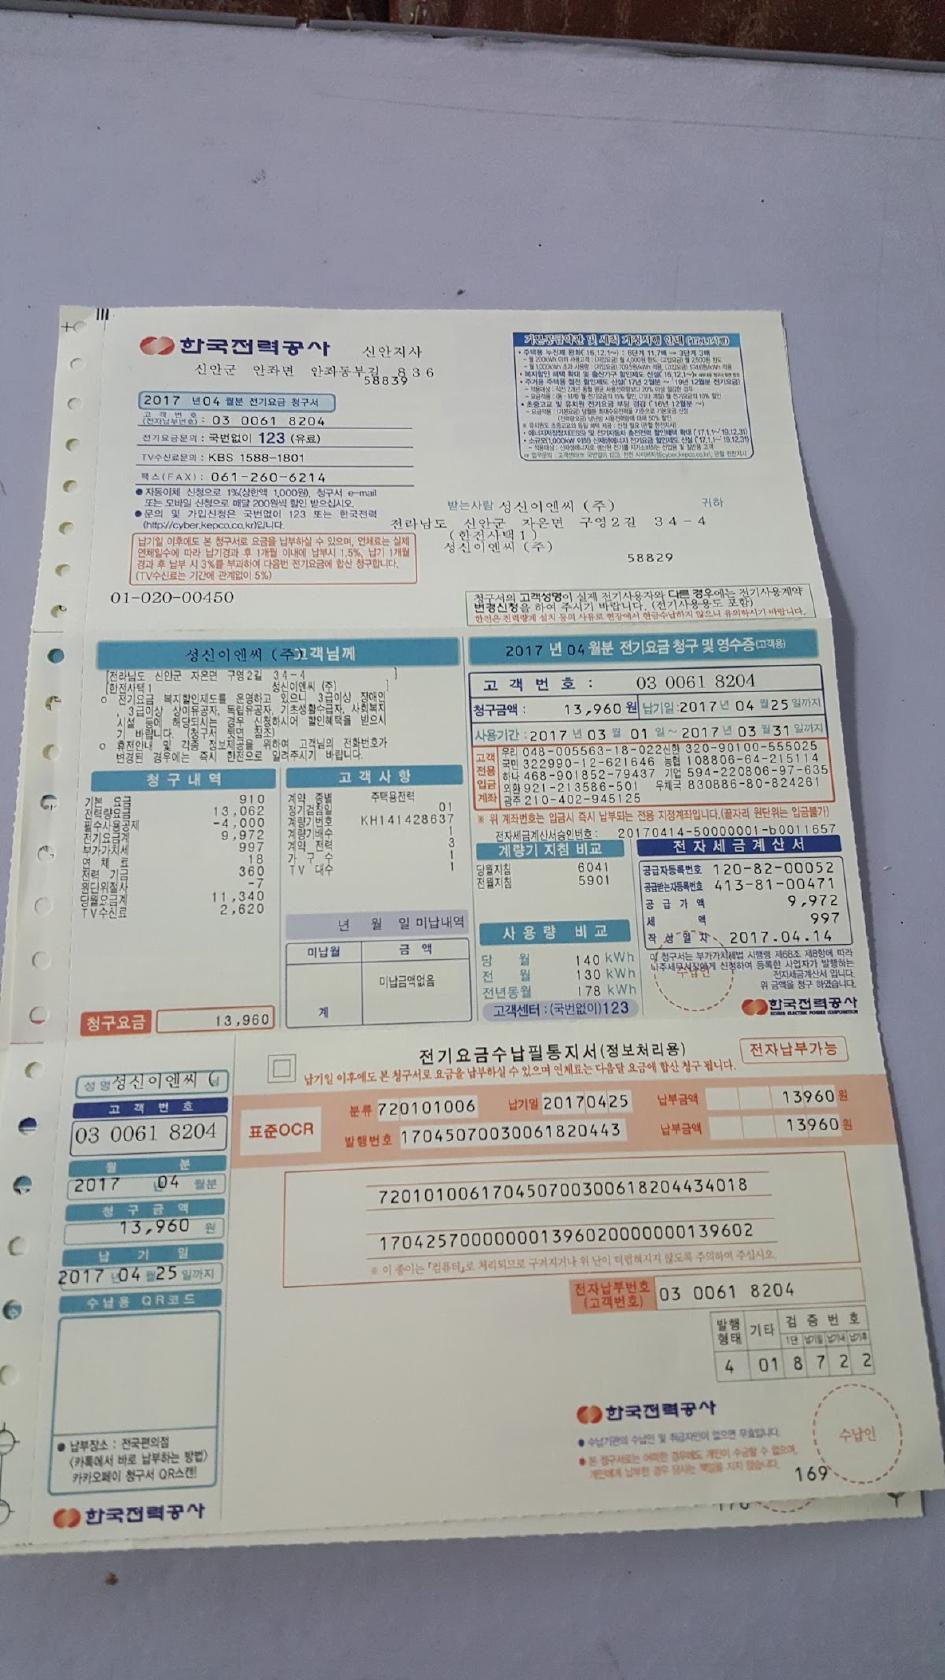 한국전력공사 신안지사
신안군 안좌면 안좌동부길 836
58839
2017 년 04 월분 전기요금 청구서
고 객 번 호
(전자납부번호) : 03 0061 8204
전기요금문의 : 국번없이 123 (유료)
TV수신료문의 : KBS 1588-1801
팩스(FAX) : 061-260-6214
● 자동이체 신청으로 1%(상한액 1,000원), 청구서 e-mail
또는 모바일 신청으로 매달 200원씩 할인 받으십시오.
● 문의 및 가입신청은 국번없이 123 또는 한국전력
(http://cyber.kepco.co.kr)입니다.
납기일 이후에도 본 청구서로 요금을 납부하실 수 있으며, 연체료는 실제
연체일수에 따라 납기경과 후 1개월 이내에 납부시 1.5%, 납기 1개월
경과 후 납부 시 3%를 부과하여 다음번 전기요금에 합산 청구합니다.
(TV수신료는 기간에 관계없이 5%)
01-020-00450
받는사람 성신이엔씨 (주) 귀하
전라남도 신안군 자은면 구영2길 34-4
(한전사택1)
성신이엔씨 (주)
58829
청구서의 고객성명이 실제 전기사용자와 다른 경우에는 전기사용계약
변경신청을 하여 주시기 바랍니다. (전기사용용도 포함)
한전은 전력량계 설치 등의 사유로 현장에서 현금수납하지 않으니 유의하시기 바랍니다.
성신이엔씨 (주)고객님께
[전라남도 신안군 자은면 구영2길 34-4 ]
[한전사택1 성신이엔씨 (주) ]
○ 전기요금 복지할인제도를 운영하고 있으니 3급이상 장애인
, 3급이상 상이유공자, 독립유공자, 기초생활수급자, 사회복지
시설 등에 해당되시는 경우 신청하시어 할인혜택을 받으시
기 바랍니다. (청구서 뒷면 참조)
○ 휴전안내 및 각종 정보제공을 위하여 고객님의 전화번호가
변경된 경우에는 즉시 한전으로 알려주시기 바랍니다.
청 구 내 역
기본 요금 910
전력량요금 13,062
필수사용공제 -4,000
전기요금계 9,972
부가가치세 997
연 체 료 18
전력 기금 360
원단위절사 -7
당월요금계 11,340
TV수신료 2,620
청구요금 13,960
고 객 사 항
계약 종별 주택용전력
정기검침일 01
계량기번호 KH141428637
계량기배수 1
계약 전력 3
가 구 수 1
TV 대수 1
년 월 일 미납내역
미납월 금 액
미납금액없음
계
2017 년 04 월분 전기요금 청구 및 영수증(고객용)
고 객 번 호 : 03 0061 8204
청구금액: 13,960 원 납기일:2017 년 04 월 25 일까지
사용기간 : 2017 년 03 월 01 일 ~ 2017 년 03 월 31 일까지
고객
전용
입금
계좌
우리 048-005563-18-022 신한 320-90100-555025
국민 322990-12-621646 농협 108806-64-215114
하나 468-901852-79437 기업 594-220806-97-635
외환 921-213586-501 우체국 830886-80-824261
광주 210-402-945125
※ 위 계좌번호는 입금시 즉시 납부되는 전용 지정계좌입니다.(끝자리 원단위는 입금불가)
전자세금계산서승인번호 : 20170414-50000001-b0011657
계량기 지침 비교
당월지침 6041
전월지침 5901
사 용 량 비 교
당 월 140 kWh
전 월 130 kWh
전년동월 178 kWh
고객센터 : (국번없이)123
전 자 세 금 계 산 서
공급자등록번호 120-82-00052
공급받는자등록번호 413-81-00471
공 급 가 액 9,972
세 액 997
작 성 일 자 2017.04.14
전자세금계산서 입니다.
위 금액을 청구 하였습니다.
한국전력공사
KOREA ELECTRIC POWER CORPORATION
성명 성신이엔씨 (
고 객 번 호
03 0061 8204
월 분
2017 년 04 월분
청 구 금 액
13,960 원
납 기 일
2017 년 04 월 25 일까지
수납용 QR코드
● 납부장소 : 전국편의점
(카톡에서 바로 납부하는 방법)
카카오페이 청구서 QR스캔!
한국전력공사
전기요금수납필통지서(정보처리용)
전자납부가능
납기일 이후에도 본 청구서로 요금을 납부하실 수 있으며 연체료는 다음달 요금에 합산 청구 됩니다.
표준OCR
분류 720101006 납기일 20170425 납부금액 13960 원
발행번호 17045070030061820443 납부금액 13960 원
72010100617045070030061820443​4018
170425700000001396020000000139602
※ 이 종이는 「컴퓨터」로 처리되므로 구겨지거나 위 난이 더럽혀지지 않도록 주의하여 주십시오.
전자납부번호
(고객번호) 03 0061 8204
발행
형태 기타 검 증 번 호
1단 납기일 납기내 납기후
4 01 8 7 2 2
한국전력공사
● 수납기관의 수납인 및 취급자인이 없으면 무효입니다.
● 본 청구서로는 어떠한 경우에도 개인이 수금할 수 없으며,
개인에게 납부한 경우 당사는 책임을 지지 않습니다.
수납인
169